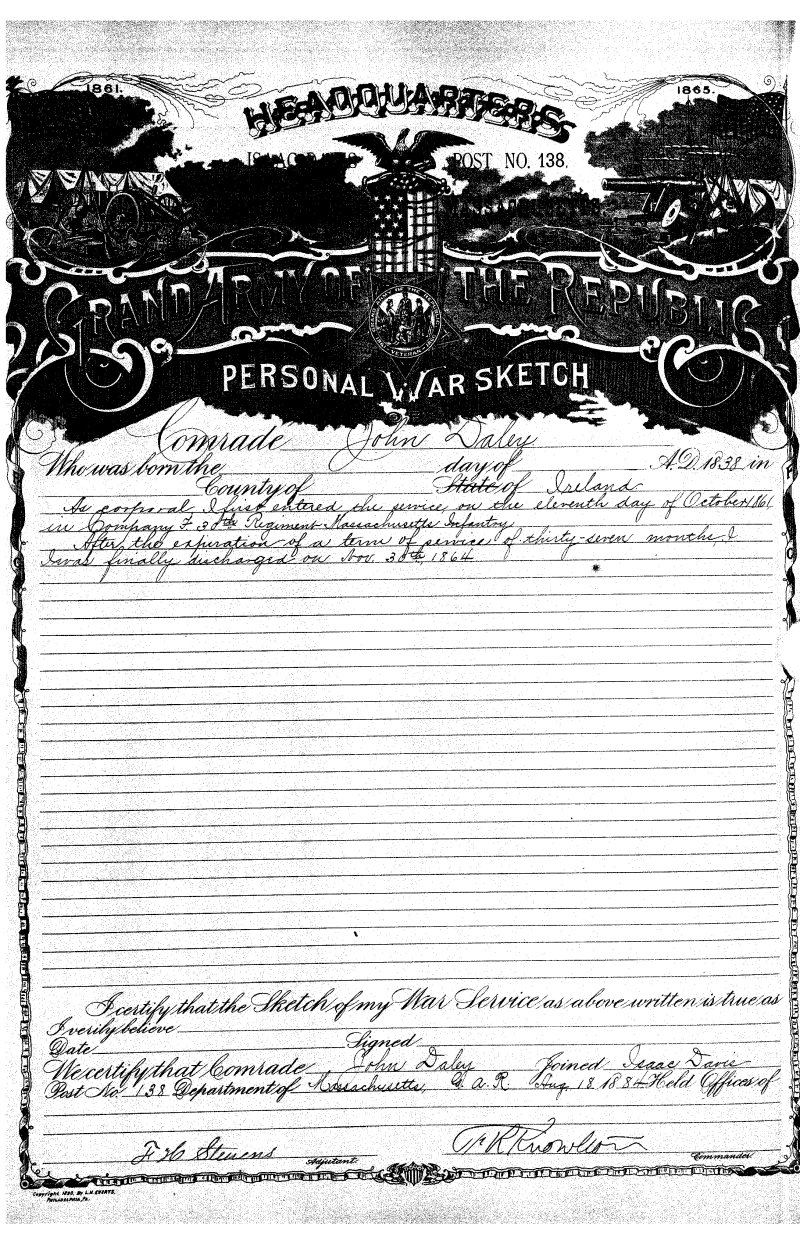 1861.
1865.
HEADQUARTERS
ISAAC DAVIS POST NO. 138.
MASSACHUSETTS
GRAND ARMY OF THE REPUBLIC
VETERAN
PERSONAL WAR SKETCH
Comrade John Daley
Who was born the day of A.D. 1838 in
County of State of Ireland
As corporal, I first entered the service, on the eleventh day of October 1861
in Company F. 30th Regiment Massachusetts Infantry
After the expiration of a term of service of thirty-seven months I
I was finally discharged on Nov. 30th, 1864
I certify that the Sketch of my War Service as above written is true as
I verily believe
Date Signed
We certify that Comrade John Daley Joined Isaac Davis
Post No. 138 Department of Massachusetts, G. A. R Aug. 18 1884 Held Offices of
F H Stevens Adjutant. F R Knowlton Commander
Copyright, 1890, By L.H. EVERTS.
PHILADELPHIA, PA.